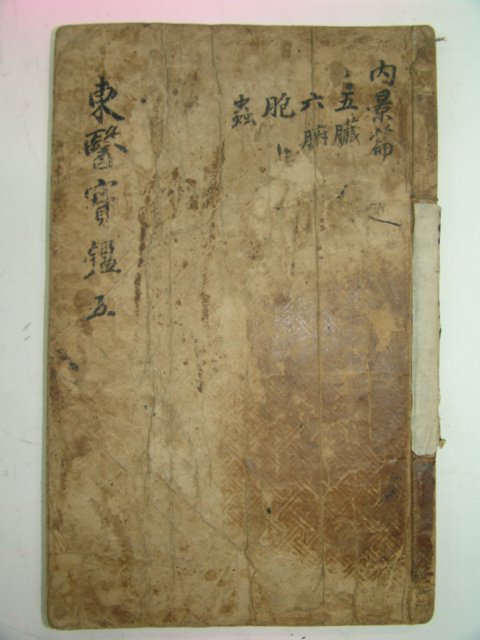 內景篇
五臟
六腑
胞
蟲
東醫寶鑑 五